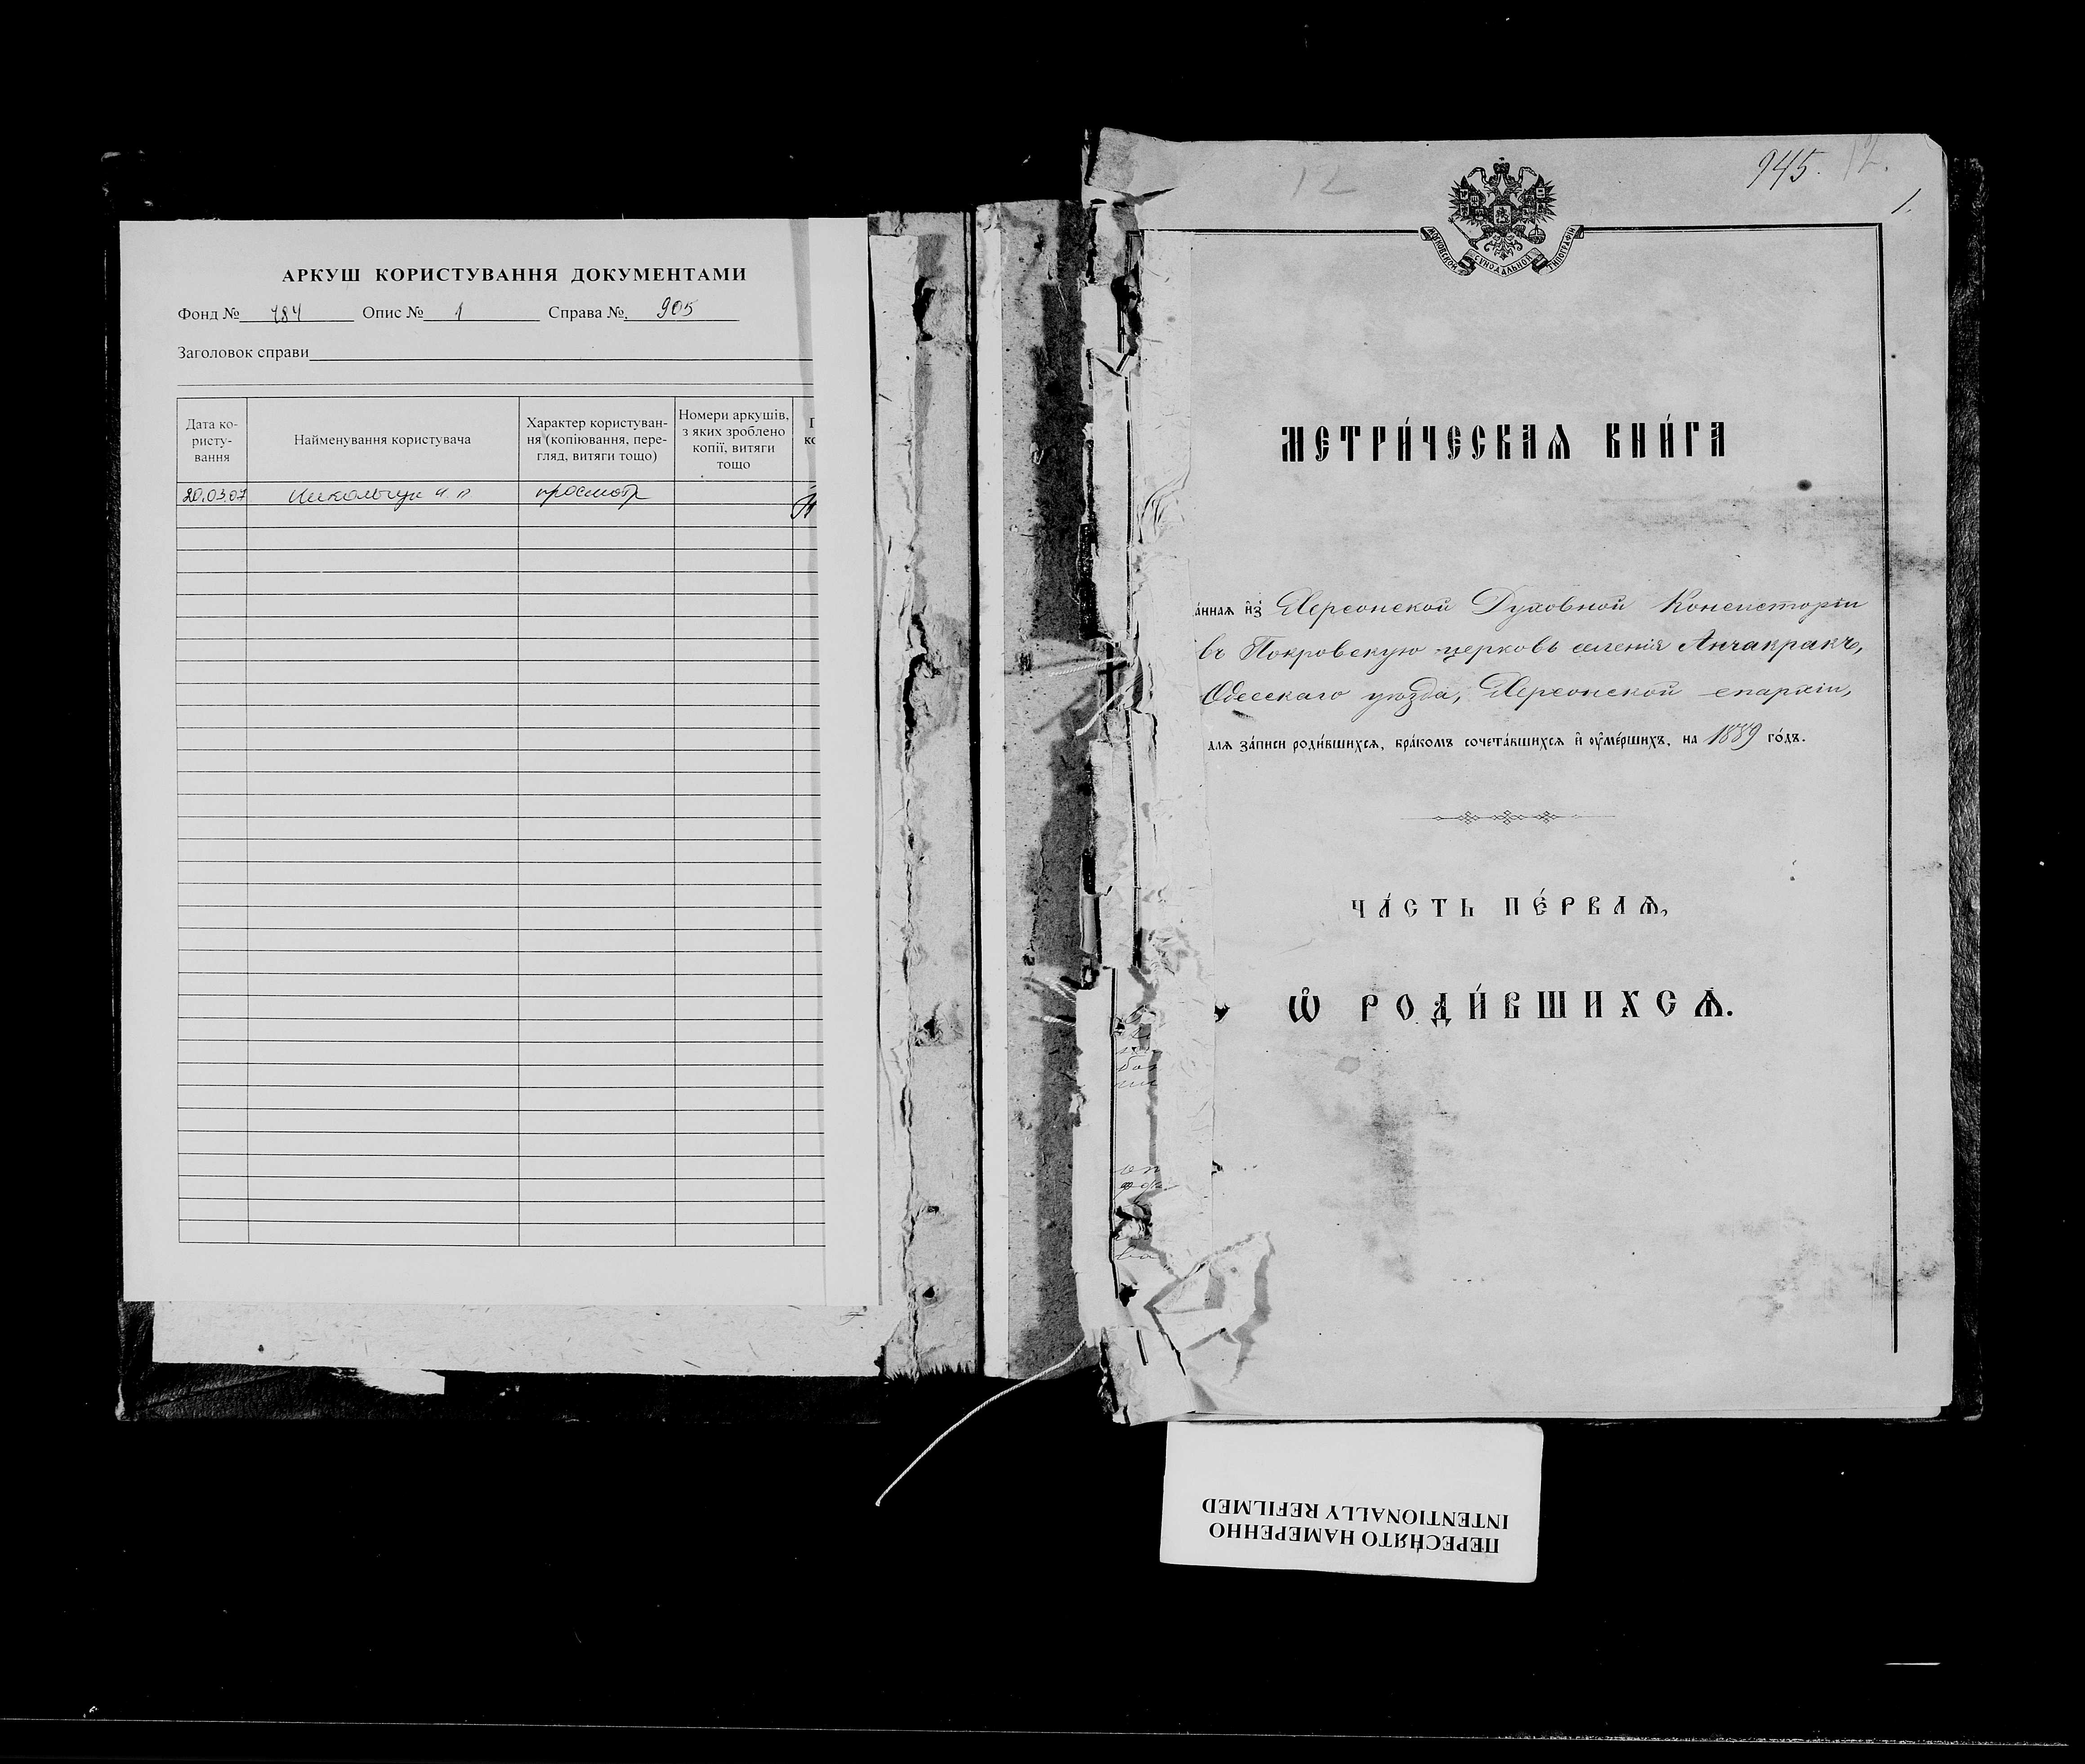 АРКУШ КОРИСТУВАННЯ ДОКУМЕНТАМИ
Фонд № 484 Опис № 1 Справа № 905
Заголовок справи
Дата ко-
ристу-
вання
Найменування користувача
Характер користуван-
ня (копіювання, пере-
гляд, витяги тощо)
Номери аркушів,
з яких зроблено
копії, витяги
тощо
20.03.07 просмотр
12
945. 12.
1.
МОСКОВСКОЙ СѴНОДАЛЬНОЙ ТИПОГРАФІИ
МЕТРИ́ЧЕСКАѦ КНИ́ГА
а́ннаѧ и҆з̾ Херсонской Духовной Консисторіи
въ Покровскую церковь селенія Анчакракъ,
Одесскаго уѣзда, Херсонской епархіи,
длѧ за́писи роди́вшихсѧ, бра́комъ сочета́вшихсѧ и҆ ѹ҆ме́ршихъ, на 1889 го́дъ.
ЧА́СТЬ ПЕ́РВАѦ,
Ѡ҆ РОДИ́ВШИХСѦ.
ПЕРЕСНЯТО НАМЕРЕННО
INTENTIONALLY REFILMED